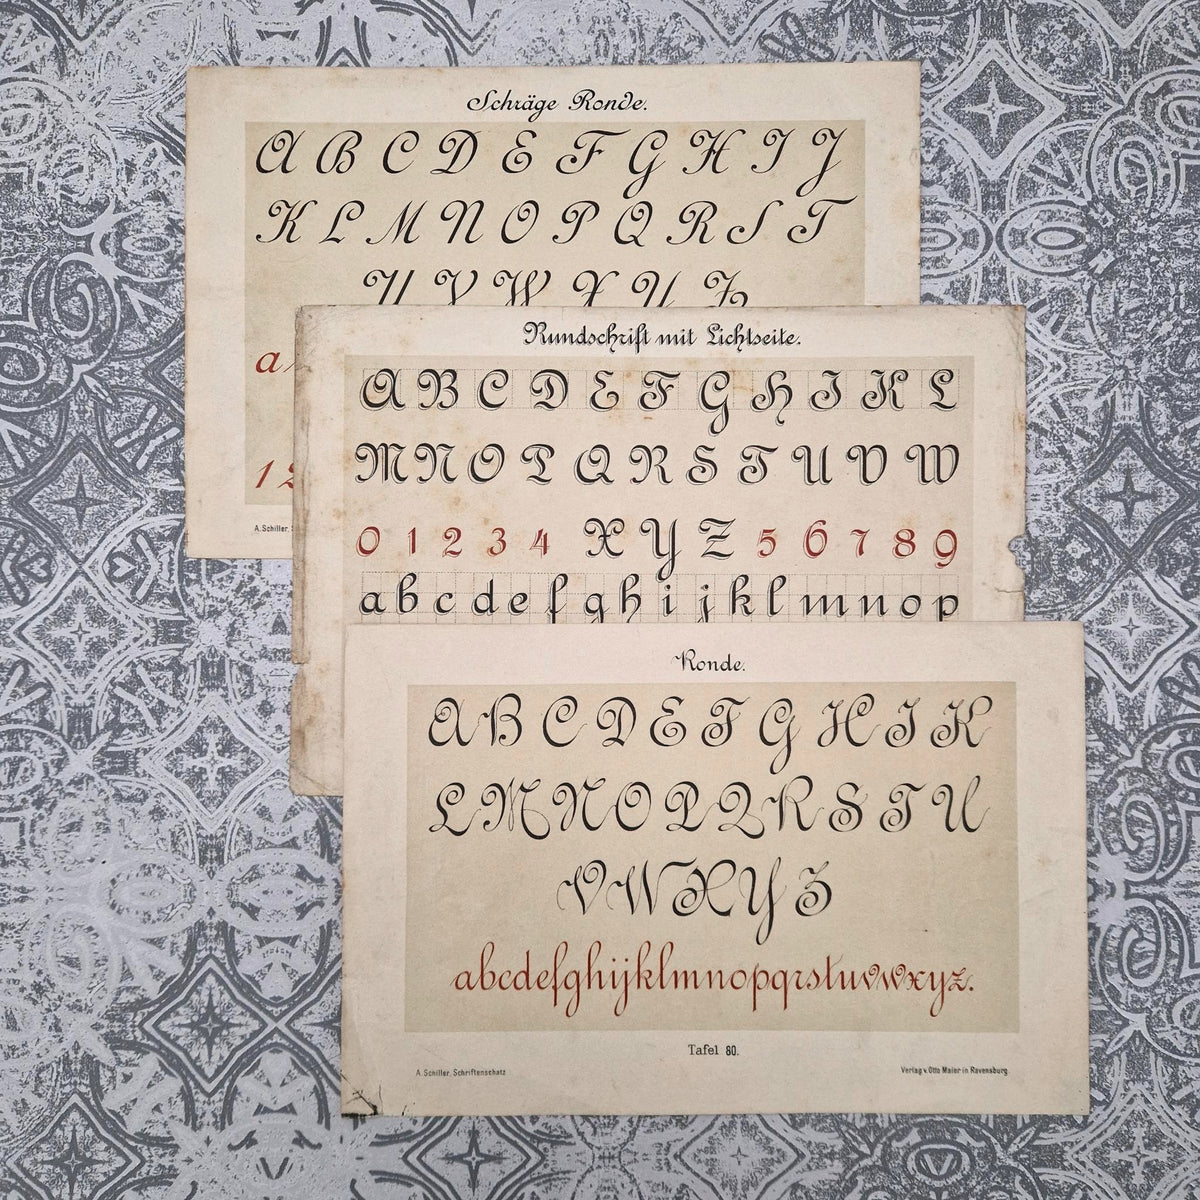 Schräge Ronde.
A B C D E F G H I J
K L M N O P Q R S T
U V W X Y Z
a
1 2
A. Schiller,
Rundschrift mit Lichtseite.
A B C D E F G H I K L
M N O P Q R S T U V W
0 1 2 3 4 X Y Z 5 6 7 8 9
a b c d e f g h i j k l m n o p
Ronde.
A B C D E F G H I K
L M N O P Q R S T U
V W X Y Z
abcdefghijklmnopqrstuvwxyz.
Tafel 80.
A. Schiller, Schriftenschatz
Verlag v. Otto Maier in Ravensburg.